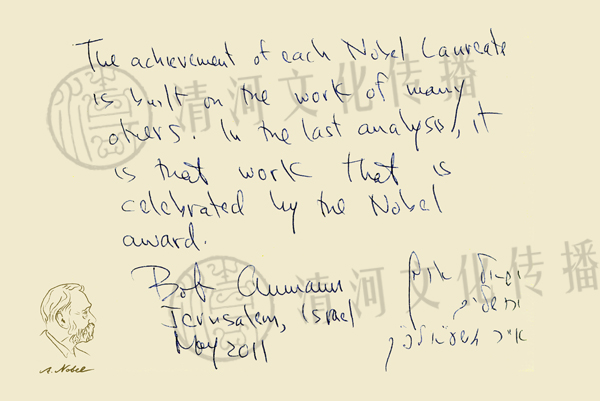 The achievement of each Nobel Laureate
is built on the work of many
others. In the last analysis, it
is that work that is
celebrated by the Nobel
award.
Bob Aumann
Jerusalem, Israel
May 2011
ירושלים
אייר
A. Nobel
清河文化传播
清河文化传播